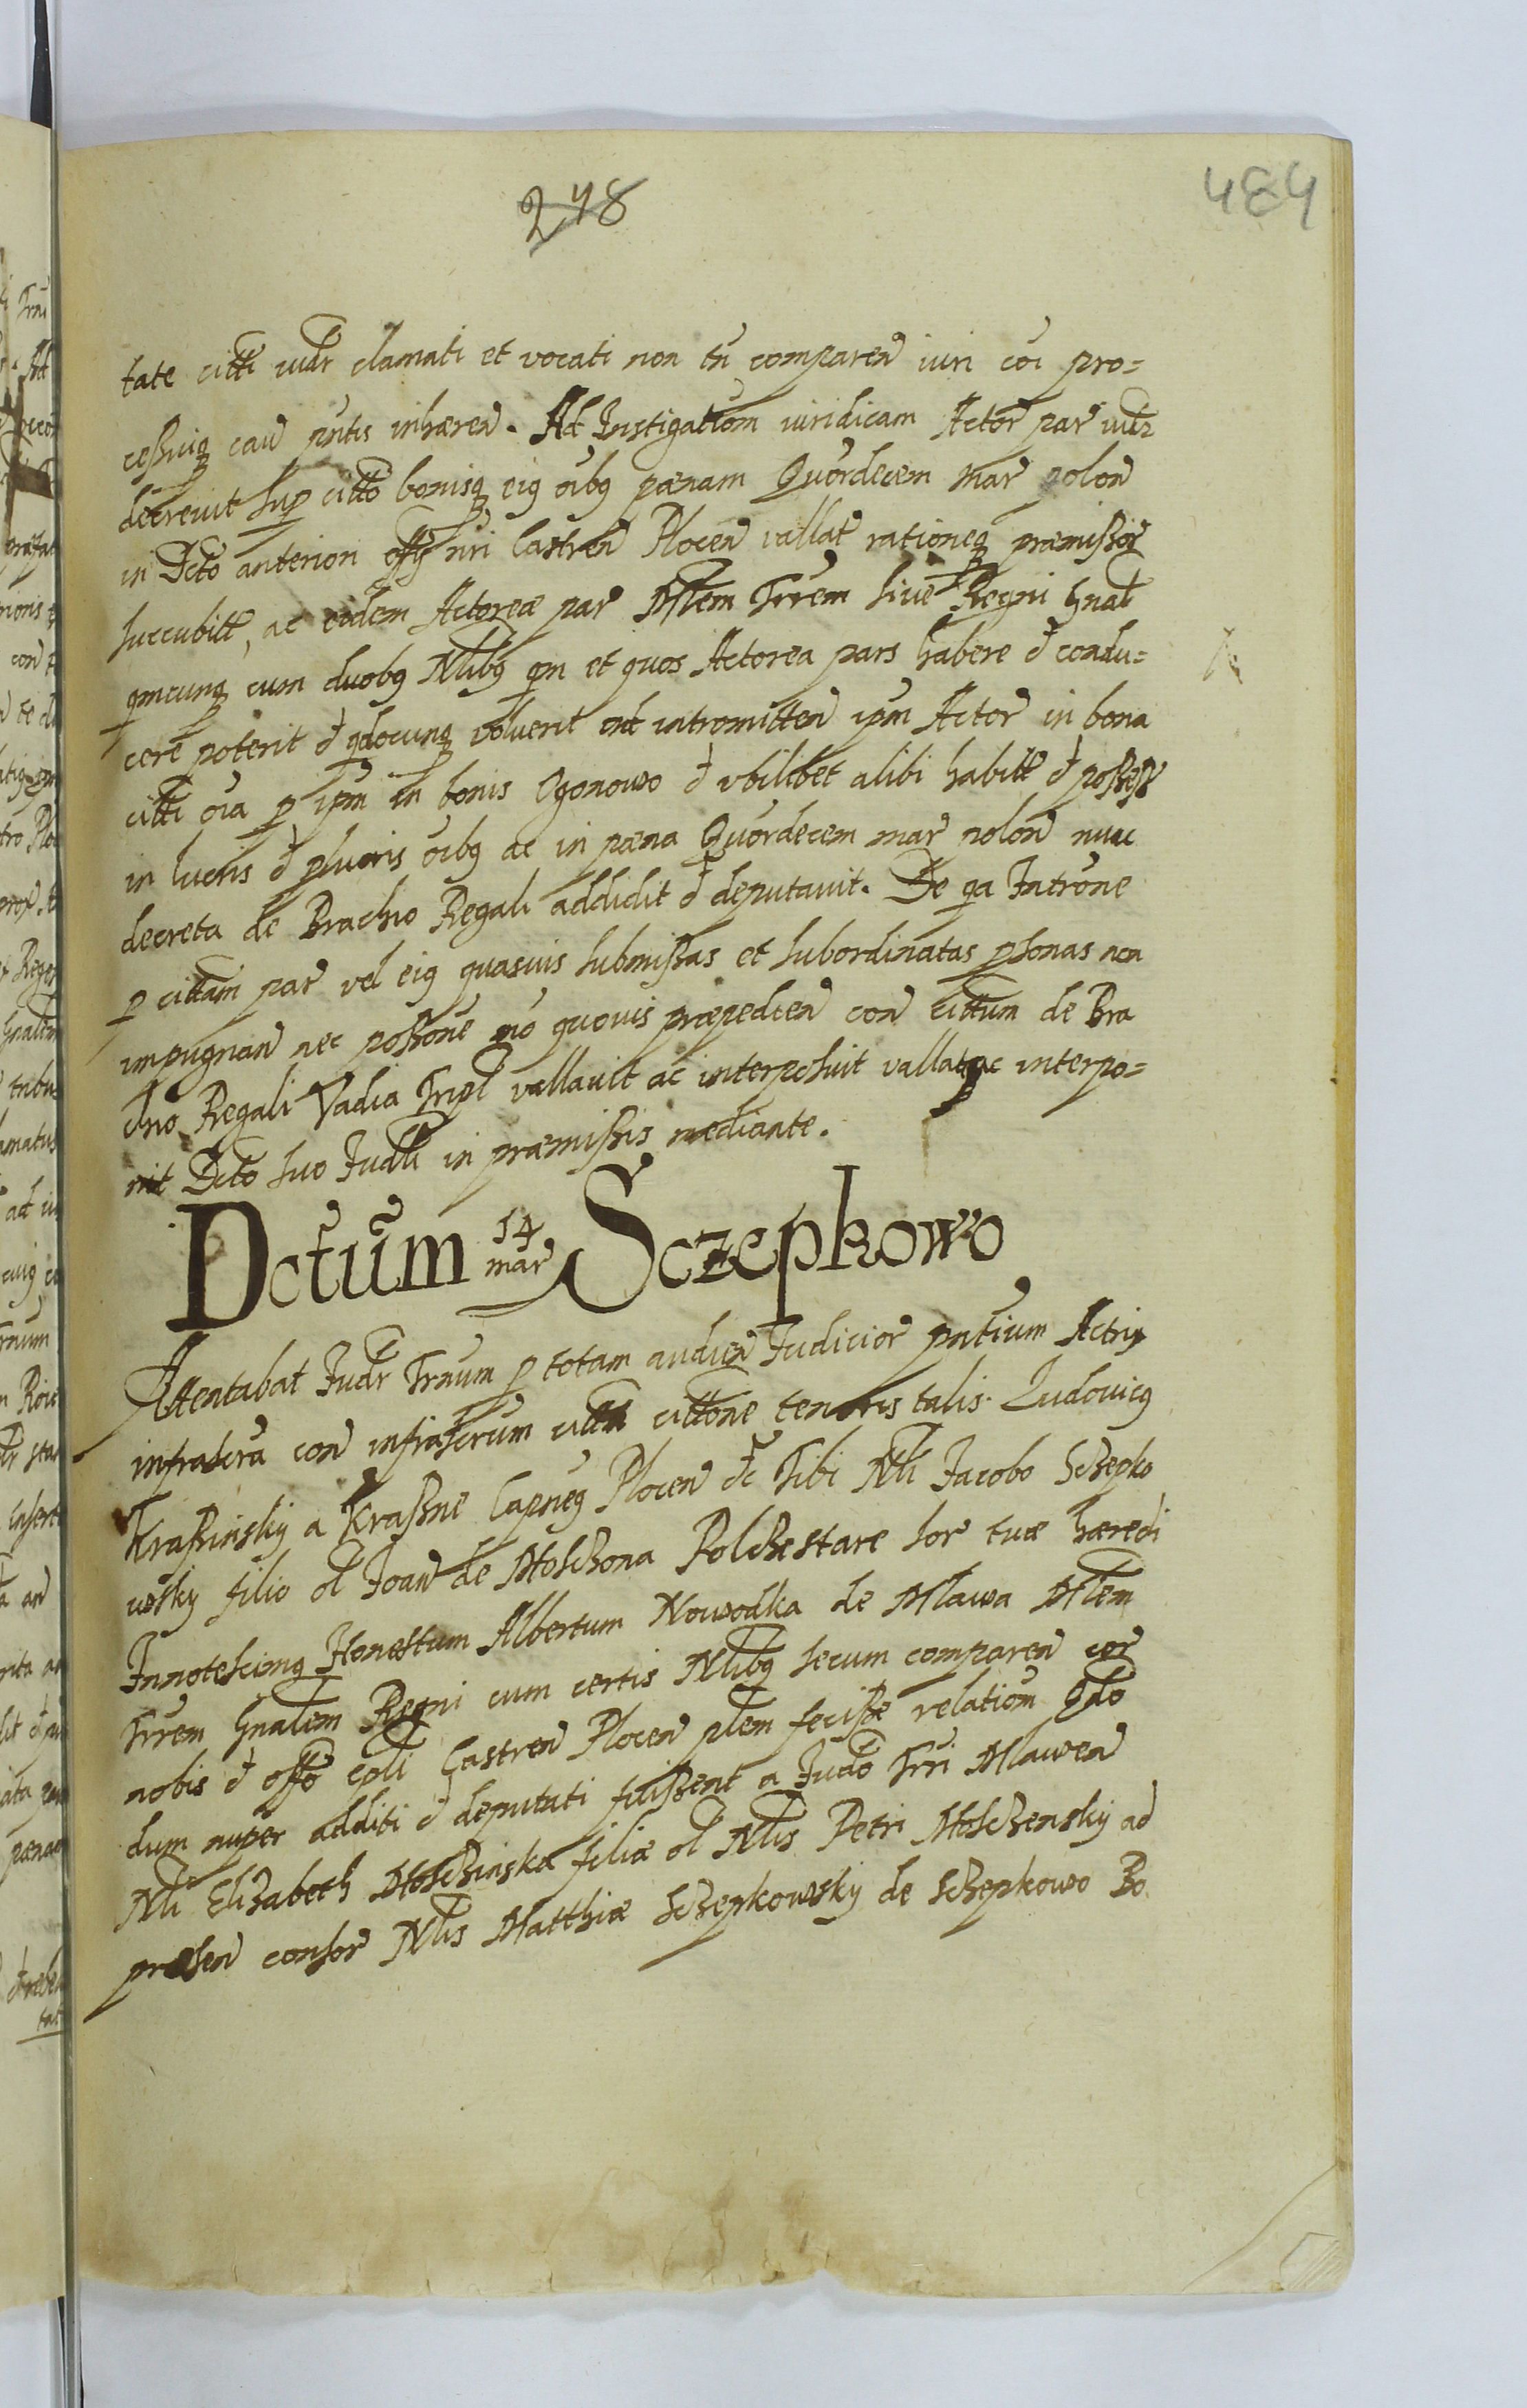 248
484
tate citti iudr clamati et vocati non tn comparen iuri coi pro=
cessuiq caus pntis inhaeren. Ad Instigationem iuridicam Actor par iudr
decreuit sup citto bonisq eig oibg paenam Quordecem mar polon
in Dcto anteriori offy nri Castren Plocen vallat rationeq praemissor
succubitt, ac eidem Actoreae par Mlem Trrem siue Regni Gnal
qmcunq cum duobg Nlibg qm et quos Actorea pars habere et condu=
cere poterit et qdocunq voluerit ad intromitten ipm Actor in bona
citti oia p ipm in bonis Ogonowo et vbilibet alibi habitt et possess
in lucris et pluoris oibg ac in paena Quordecem mar polon nunc
decreta de Brachio Regali addidit et deputauit. De qa Introne
p cittam par vel eig quasuis submissas et subordinatas psonas non
impugnan nec possone mo quouis praepedien con cittum de Bra
chio Regali Vadia Tripl vallauit ac interposuit vallatq ac interpo=
nit Dcto suo Judli in praemissis mediante.
Dctum 14 mar Sczepkowo
Attentabat Judr Trnum p totam audien Judicior pntium Actrix
infrascra con infrascrum cittu cittone tenoris talis. Ludouicg
Krassinsky a Krassne Capneg Plocen etc Tibi Nli Jacobo Sczepko
wsky filio ol Joan de Mosczona Polczestare sor tuae haeredi
Innotescimg Honestum Albertum Nowodka de Mlawa Mlem
Trrem Gnalem Regni cum certis Nlibg secum comparen cor
nobis et offo epli Castren Plocen plem fecisse relationem Qdo
dum nuper additi et deputati fuissent a Judo Trri Mlawen
Nli Elizabeth Mosczinska filiae ol Nlis Petri Mosczensky ad
praesen consor Nlis Matthiae Sczepkowsky de Sczepkowo Bo